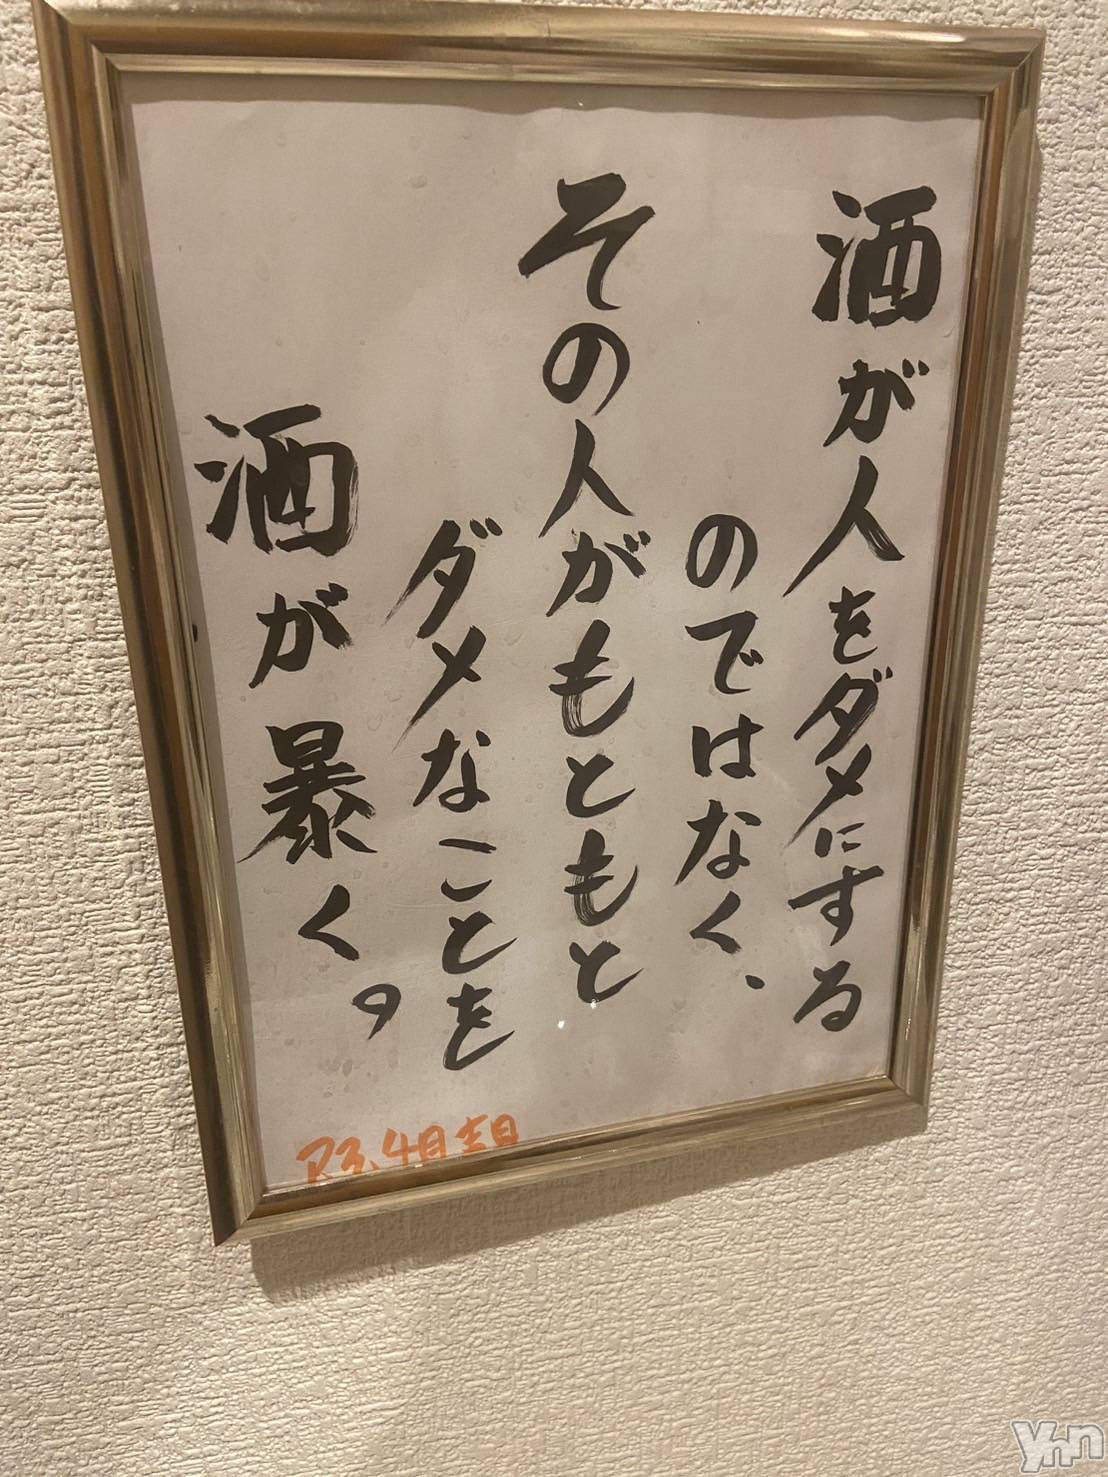 酒が人をダメにする
のではなく、
その人がもともと
ダメなことを
酒が暴く。
R3.4月吉日
ynn